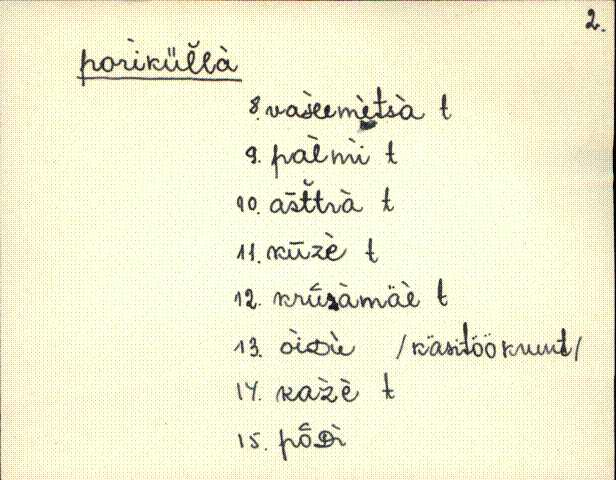 2.
porìkül̆l̆à
8. vaśeemètsà t
9. pal̀mì t
10. as̄t̆trà t
11. kūzè t
12. krū́zàmäè t
13. òiDìe /käsitöökunt/
14. kaz̀è t
15. pȭDì